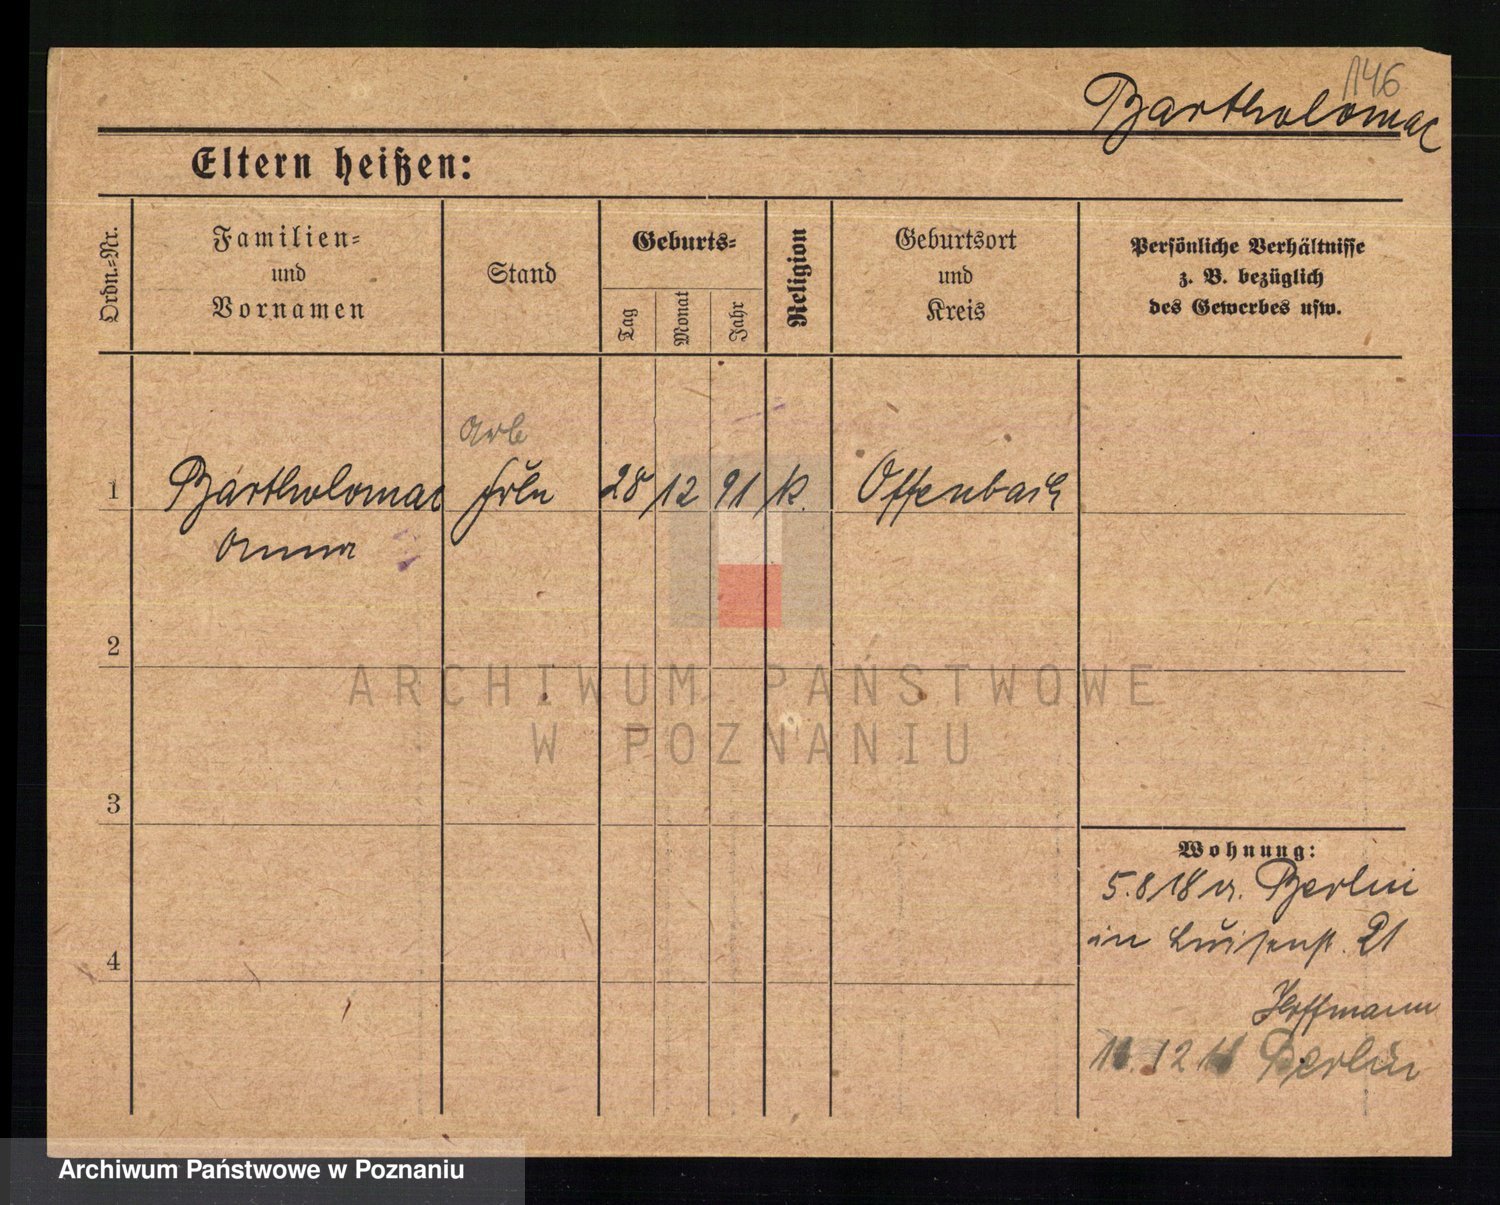 146
Bartholomae
Eltern heißen:
Ordn.-Nr.
Familien-
und
Vornamen
Stand
Geburts-
Tag
Monat
Jahr
Religion
Geburtsort
und
Kreis
Persönliche Verhältnisse
z. B. bezüglich
des Gewerbes usw.
Arb
1 Bartholomae Frln 28 12 91 k. Offenbach
Anna
2
ARCHIWUM PAŃSTWOWE
W POZNANIU
3
Wohnung:
5.8 18 v. Berlin
in Luisenst. 21
4
Hoffmann
12 Berlin
Archiwum Państwowe w Poznaniu